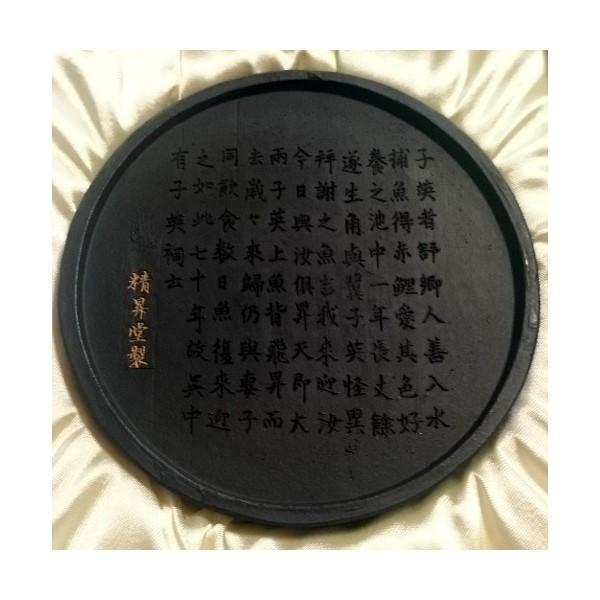 子英者舒鄉人善入水
捕魚得赤鯉愛其色好
養之池中一年長丈餘
遂生角與翼子英怪異
拜謝之魚言我來迎汝
今日與汝俱昇天即大
雨子英上魚背飛昇而
去歲々來歸仍與妻子
同飲食数日魚復來迎
之如此七十年故吳中
有子英祠士
精昇堂製